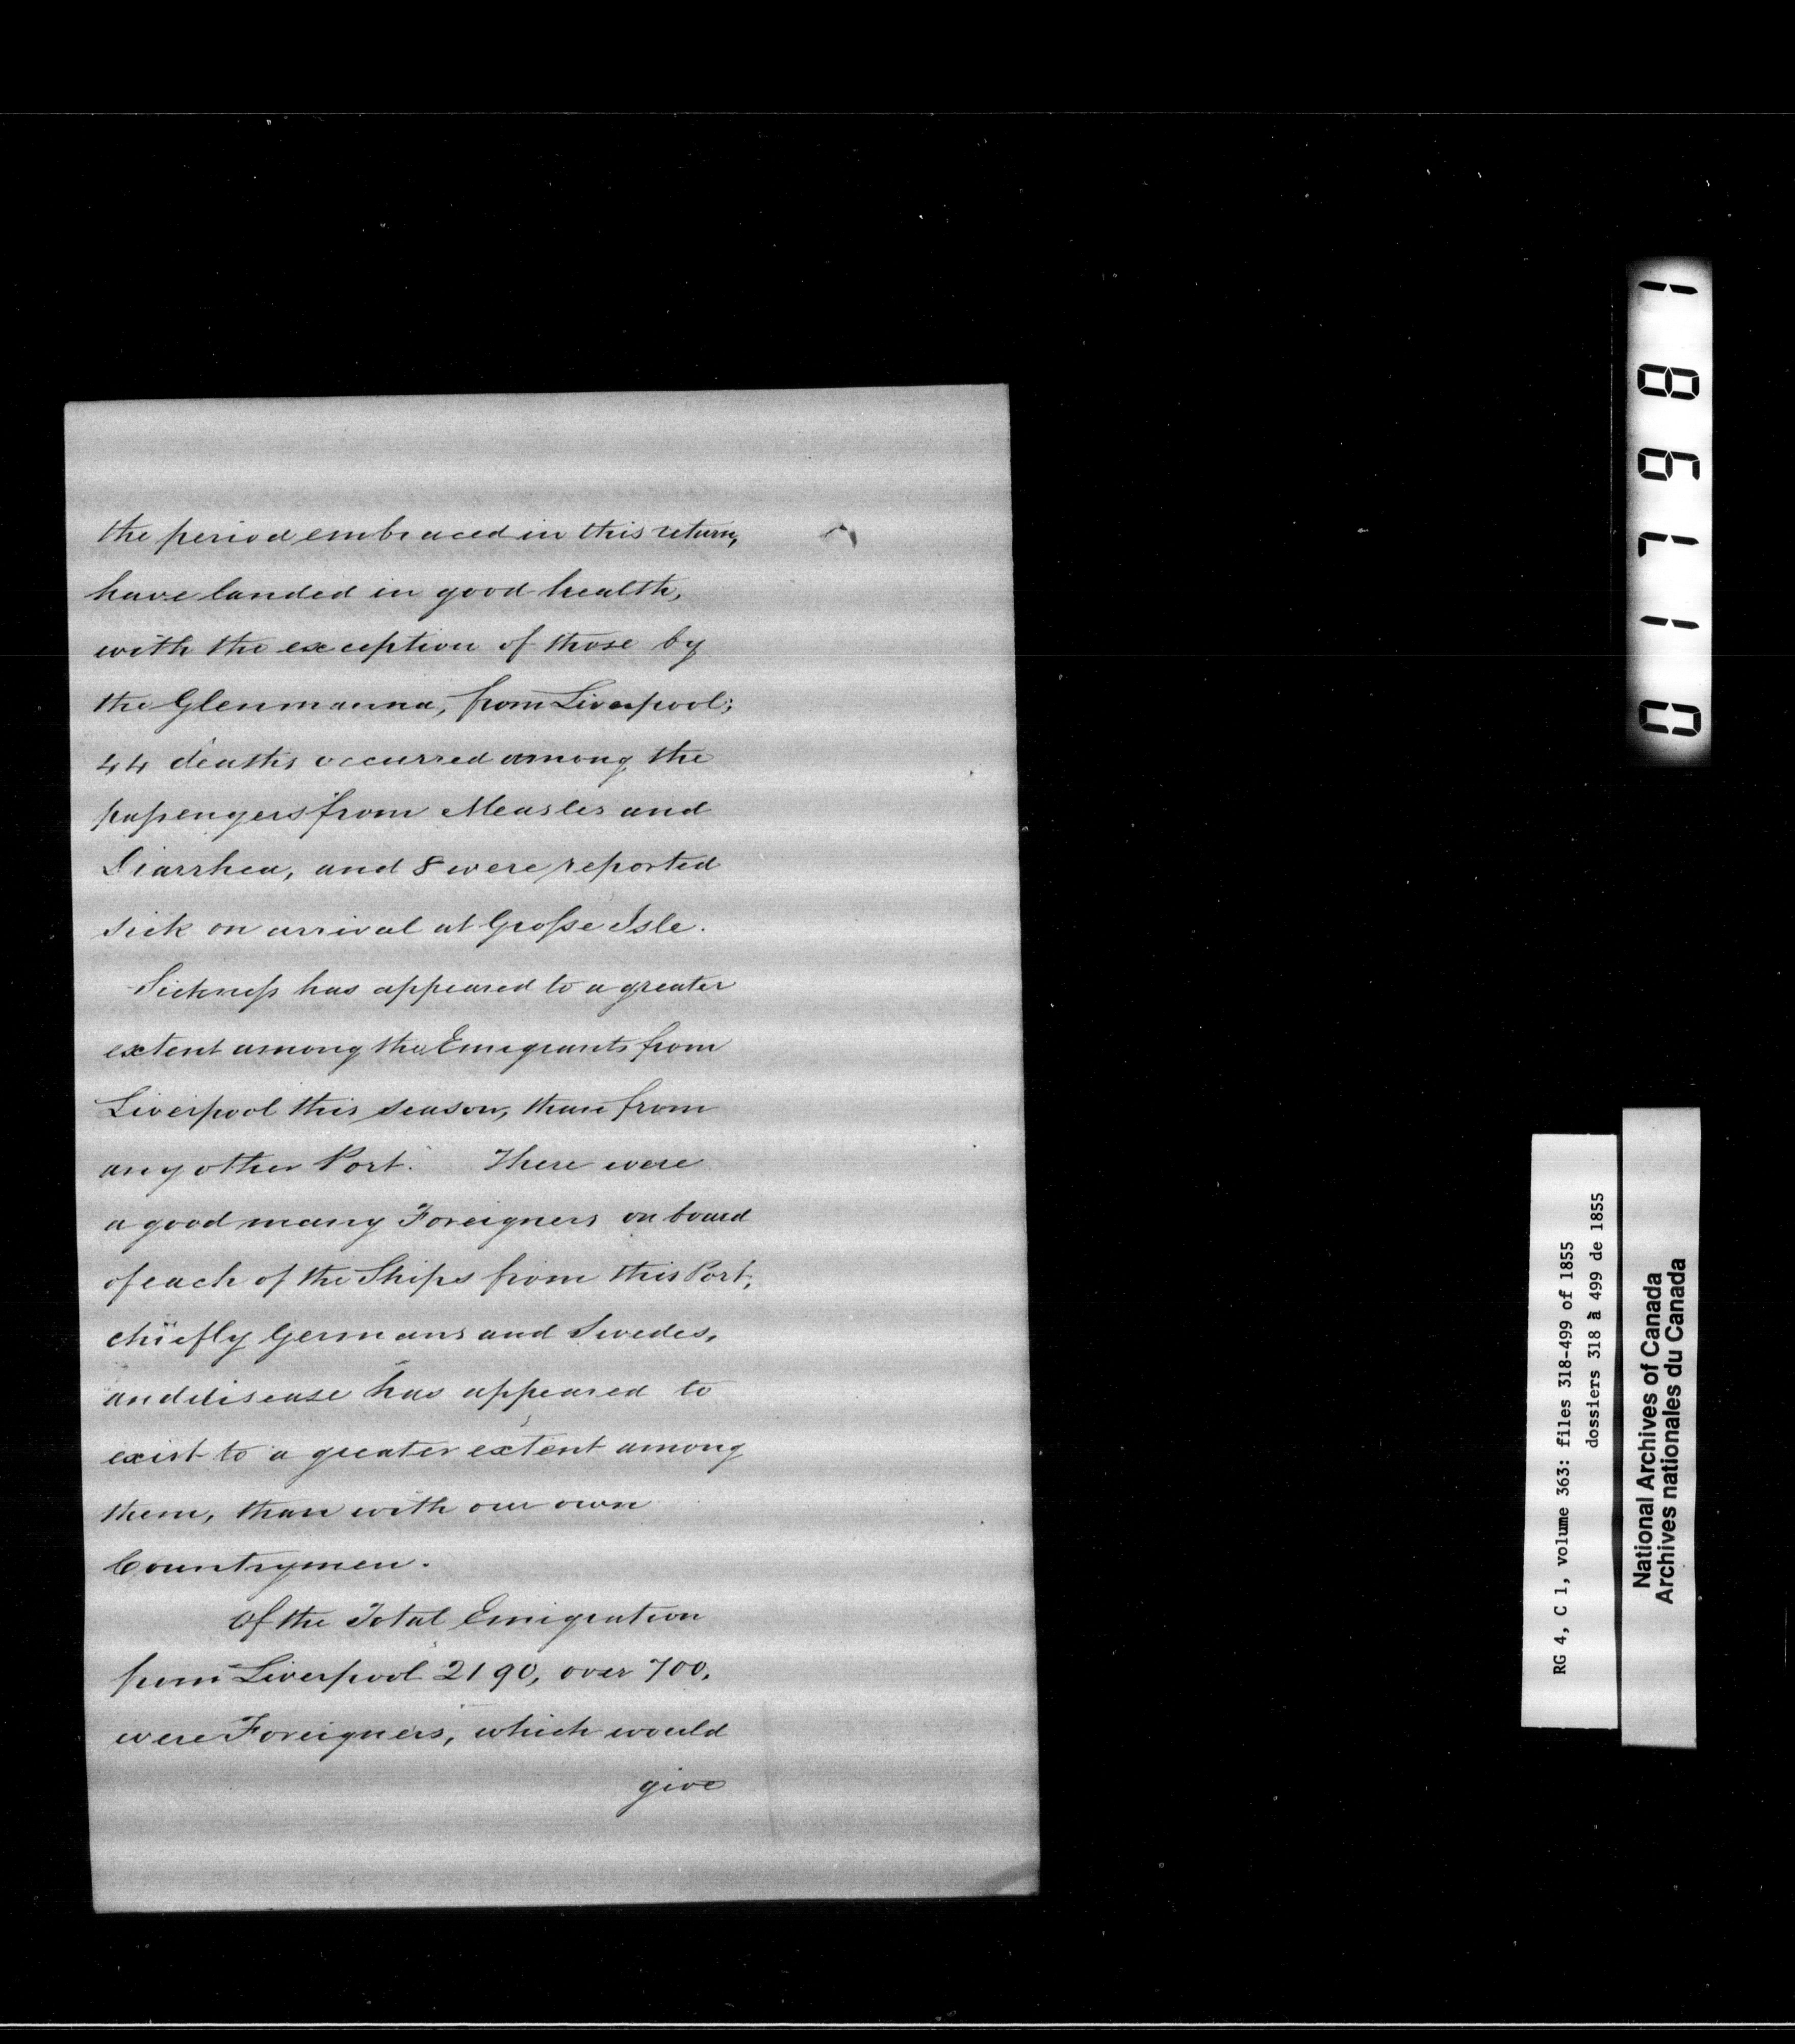 the period embraced in this return,
have landed in good health,
with the exception of those by
the Glenmanna, from Liverpool;
44 deaths occurred among the
paſsengers from Measles and
Diarrhea, and 8 were reported
sick on arrival at Groſse Isle.
Sickneſs has appeared to a greater
extent among the Emigrants from
Liverpool this season, than from
any other Port. There were
a good many Foreigners on board
of each of the Ships from this Port,
chiefly Germans and Swedes,
and disease has appeared to
exist to a greater extent among
them, than with our own
Countrymen.
Of the Total Emigration
from Liverpool 2190, over 700,
were Foreigners, which would
give
017981
RG 4, C 1, volume 363: files 318-499 of 1855
dossiers 318 à 499 de 1855
National Archives of Canada
Archives nationales du Canada